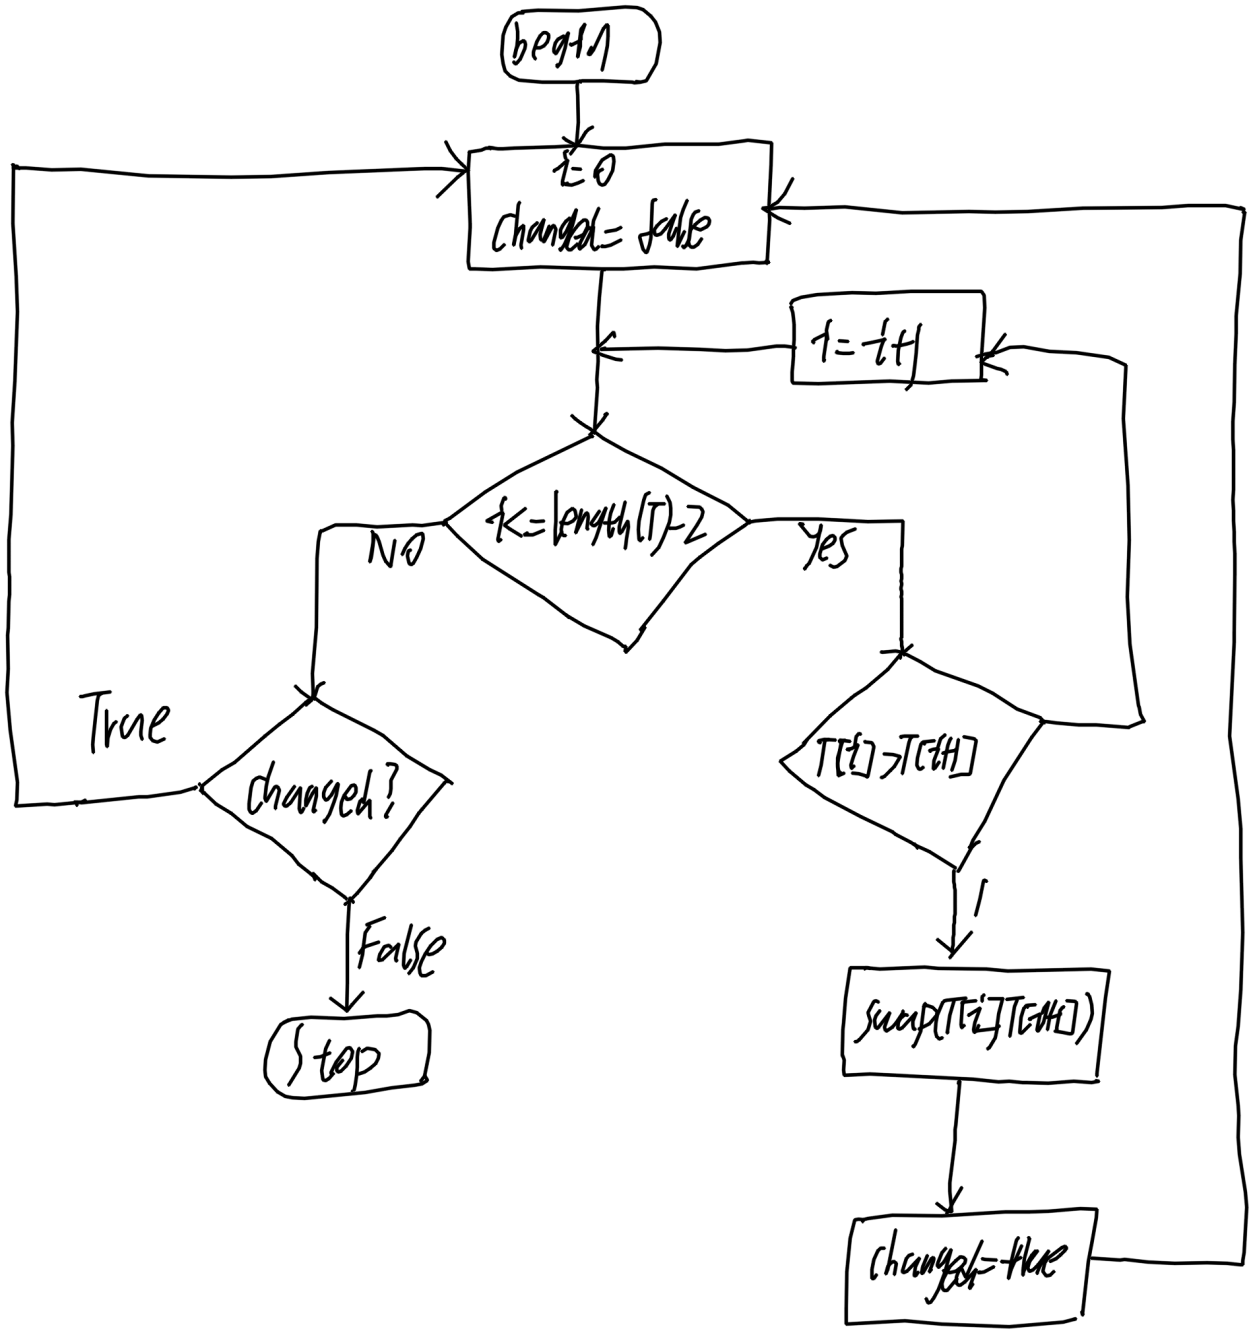 begin
i=0
changed= false
i=i+1
i<=length(T)-2
No
Yes
True
changed?
T[i]>T[i+1]
1
False
swap(T[i]T[i+1])
Stop
changed=true